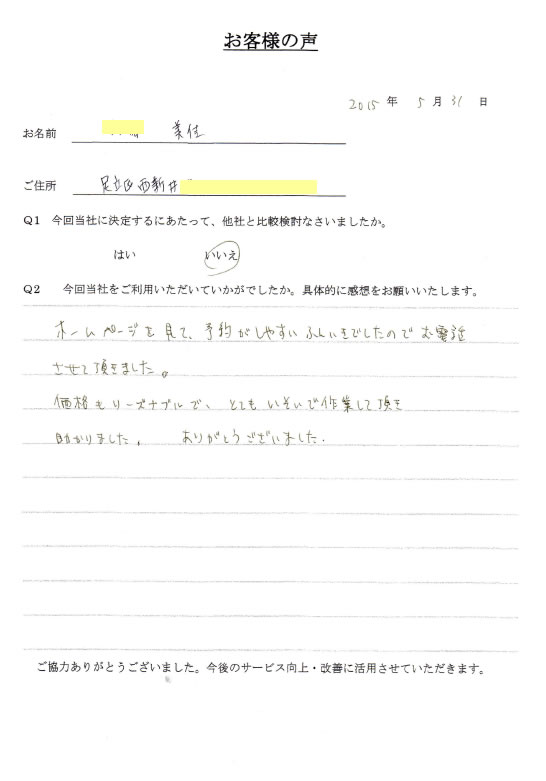 お客様の声
2015 年 5 月 31 日
お名前 美佳
ご住所 足立区西新井
Q1 今回当社に決定するにあたって、他社と比較検討なさいましたか。
はい いいえ
Q2 今回当社をご利用いただいていかがでしたか。具体的に感想をお願いいたします。
ホームページを見て、予約がしやすいふんいきでしたのでお電話
させて頂きました。
価格もリーズナブルで、とてもいそいで作業して頂き
助かりました。 ありがとうございました.
ご協力ありがとうございました。今後のサービス向上・改善に活用させていただきます。